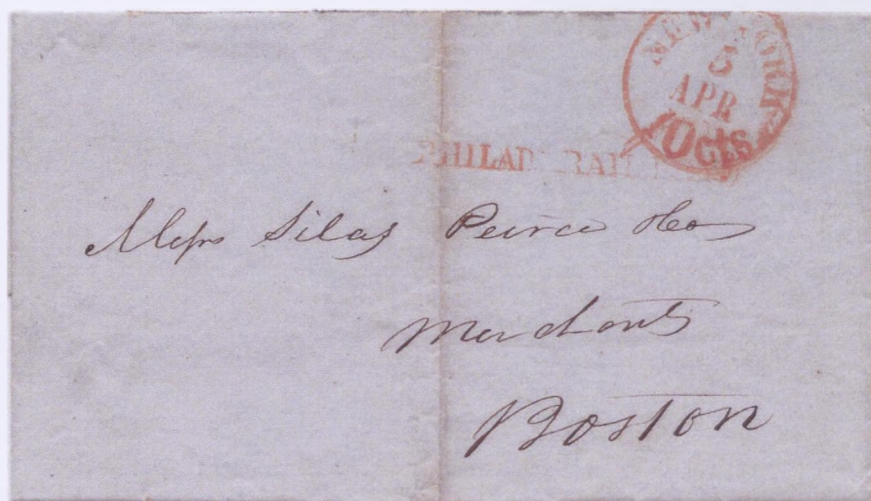 NEW YORK
5
APR
10 cts
PHILAD RAIL
Messrs Silas Peirce & Co
Merchants
Boston